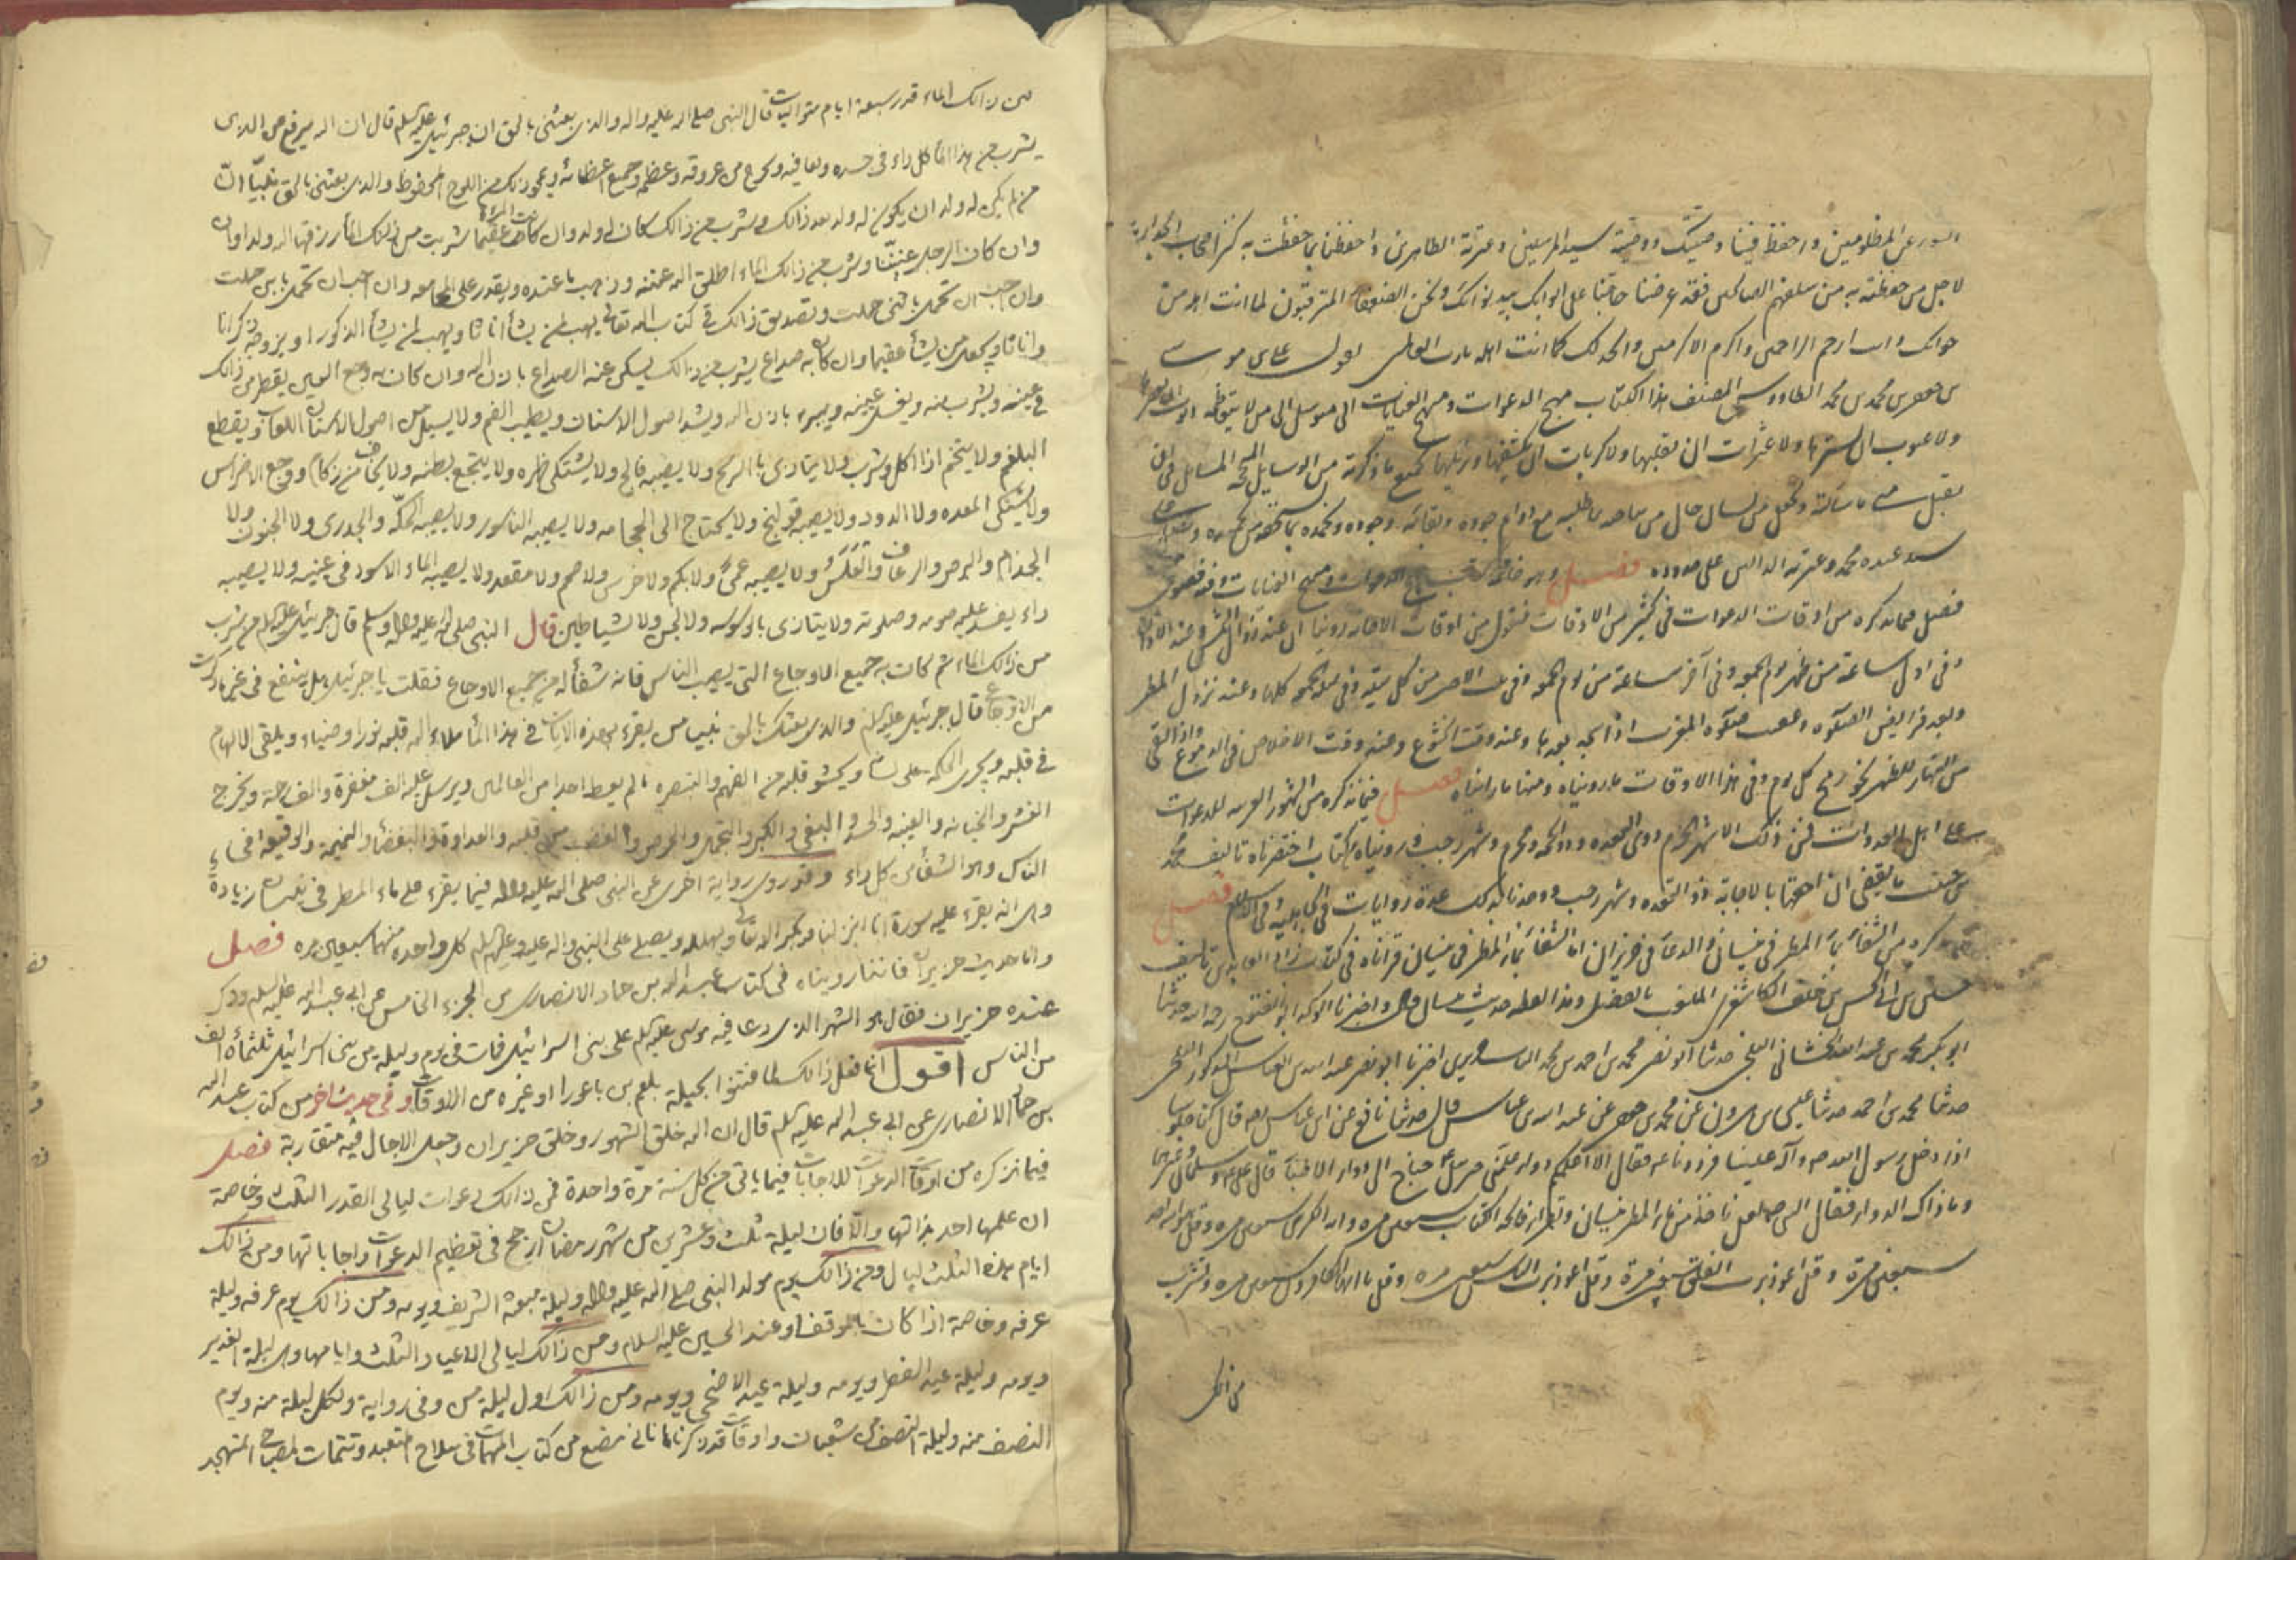 السور عن المظلومين واحفظ فينا وصيتك ووصية سيد المرسلين وعترته الطاهرين واحفظنا بما حفظت به كنز اصحاب الجدار
لاجل من حفظته به من سلفهم الصالحين فقد عرضنا حاجتنا على ابوابك بيد نوابك ونحن الضعفاء المترقبون لما انت اهله من
جوابك وانت ارحم الراحمين واكرم الاكرمين والحمد لك كما انت اهله يا رب العالمين يقول على بن موسى
بن جعفر بن محمد بن محمد الطاووس المصنف هذا الكتاب مهج الدعوات ومنهج العنايات
ولا عيوب ان يسترها ولا عثرات ان يقيلها ولا كربات ان يكشفها ويزيلها بجميع ما ذكرته من الوسايل
يقبل منى ما سألته
سيد عبده محمد وعترته الدالين على حدوده فصل وهو خاتمة كتاب مهج الدعوات ومنهج العنايات
فصل فيما نذكره من اوقات الدعوات فى كثير من الاوقات فنقول من اوقات الاجابه روينا ان عند زوال الشمس وعند الاذان
وفى اول ساعة من ظهر يوم الجمعه وفى آخر ساعة من يوم الجمعه وفى الثلث الاخير من كل ليلة وفى ليلة الجمعه كلها وعند نزول المطر
وبعد فرايض الصلوة وعقيب صلوة المغرب اذا سجد بعدها وعند وقت الخشوع وعند وقت الاخلاص فى الدموع واذا بقى
من النهار للظهر نحو رمح كل يوم وفى هذا الاوقات ما رويناه ومنها ما رأيناه فصل فيما نذكره من الشهور العربيه للدعوات
على اهل العدوات فمن ذلك الاشهر الحرم ذوى القعده وذو الحجه ومحرم وشهر رجب قد رويناه من كتاب اختصرناه تاليف محمد
بن حبيب ما يقتضى ان احقها بالاجابة ذو القعده وشهر رجب ووجدنا بذلك عدة روايات فى الجاهليه وفى الاسلام فصل
نذكره من الشفاء بماء المطر فى نيسان والدعاء فى حزيران اما الشفاء بماء المطر فى نيسان قرأناه فى كتاب زاد العابدين تاليف
حسين بن ابى الحسن بن خلف الكاشغرى الملقب بالفضل وهذا لفظه حديث نيسان قال واخبرنا الوالد ابو الفتوح رحمه الله حدثنا
ابو بكر محمد بن عبد الله الخشانى البلخى حدثنا ابو نصر محمد بن احمد بن محمد اخبرنا ابو نصر عبد الله بن العباس المذكور البلخى
حدثنا محمد بن احمد حدثنا عيسى بن هرون عن محمد بن جعفر عن عبد الله بن عباس قال حدثنا نافع عن ابن عباس قال كنا جلوسا
اذ دخل رسول الله ص وآله علينا فرددنا عليه فقال الا اعلمكم دواء علمنى جبرئيل حيث لا احتاج الى دواء الاطباء قال على ع وسلمان وغيرهما
وما ذاك الدواء فقال النبى ص لعلى تأخذ من ماء المطر نيسان وتقرأ فاتحة الكتاب سبعين مره واية الكرسى سبعين مره وقل هو الله احد
سبعين مرة وقل اعوذ برب الفلق سبعين مرة وقل اعوذ برب الناس سبعين مره وقل يا ايها الكافرون سبعين مره وتشرب
من ذلك
من ذالك الماء قدر سبعة ايام متواليات قال النبى صلى الله عليه واله والذى بعثنى بالحق ان جبرئيل عليه السلم قال ان الله يرفع من الذى
يشرب من هذا الماء كل داء فى جسده ويعافيه ويخرج من عروقه وعظمه وجميع اعضائه ويمحو ذلك من اللوح المحفوظ والذى بعثنى بالحق نبيّا انّ
من لم يكن له ولد ان يكون له ولد بعد ذالك وشرب من ذالك كان له ولد وان كانت المراة عقيما شربت من ذلك الماء رزقها الله ولدا وان
وان كان الرجل عنّينا وشرب من ذالك الماء اطلق الله عنته وذهب ما عنده ويقدر على المجامعه وان احب ان تحمل بابن حملت
وان احب ان تحمل بانثى حملت وتصديق ذالك فى كتاب الله تعالى يهب لمن يشأ اناثا ويهب لمن يشأ الذكور او يزوجهم ذكرانا
واناثا ويجعل من يشأ عقيما وان كان به صداع يشرب من ذالك يسكن عنه الصداع باذن الله وان كان به وجع العين يقطر من ذالك
فى عينيه ويشرب منه ويغسل عينيه ويبرء باذن الله ويشد اصول الاسنان ويطيب الفم ولا يسيل من اصول الاسنان اللعاب ويقطع
البلغم ولا يتخم اذا اكل وشرب ولا يتاذى بالريح ولا يصيبه فالج ولا يشتكى ظهره ولا يتجع بطنه ولا يخاف من زكام ووجع الاضراس
ولا يشتكى المعده ولا الدود ولا يصيبه قولنج ولا يحتاج الى الحجامه ولا يصيبه الناسور ولا يصيبه الحكّه والجدرى ولا الجنون ولا
الجذام والبرص والرعاف والقلس ولا يصيبه عمىً ولا بكم ولا خرس ولا صمم ولا مقعد ولا يصيبه الماء الاسود فى عينيه ولا يصيبه
داء يفسد عليه صومه وصلوته ولا يتاذى بالوسوسه ولا الجن ولا الشياطين قال النبى صلى الله عليه واله وسلم قال جبرئيل عليه السلم من شرب
من ذالك الماء ثم كان به جميع الاوجاع التى يصيب الناس فانه شفأله من جميع الاوجاع فقلت يا جبرئيل هل ينتفع فى غير ما ذكرت
من الاوجاع قال جبرئيل عليه السلم والذى بعثك بالحق نبيا من يقرء بهذه الايات فى هذا الماء ملاء الله قلبه نورا وضياء ويلقى الالهام
فى قلبه ويجرى الحكمه على لسانه ويحشو قلبه من الفهم والتبصره ما لم يعط احدا من العالمين ويرسل عليه الف مغفرة والف رحمة ويخرج
الغش والخيانه والغيبه والحسد والبغى والكبر والبخل والحرص والغضب من قلبه والعداوة والبغضأ والنميمة والوقيعه فى
الناس وهو الشفأ من كل داء وقد روى رواية اخرى عن النبى صلى الله عليه واله فيما يقرء على ماء المطر فى نيسان زيادة
وهى انه يقرء عليه سورة انا انزلناه ويكبر الله تعالى ويهلله ويصلى على النبى واله عليه وعليهم السلم كل واحده منها سبعين مره فصل
واما حديث حزيران فاننا رويناه فى كتاب عبد الله بن حماد الانصارى من الجزء الخامس عن ابى عبد الله عليه السلم وذكر
عنده حزيران فقال هو الشهر الذى دعا فيه موسى عليه السلم على بنى اسرائيل فمات فى يوم وليلة من بنى اسرائيل ثلثمأة الف
من الناس اقول انما فعل ذالك لما فتنوا بحيلة بلعم بن باعورا او غيره من الاوقات وفى حديث اخر من كتب عبد الله
بن حماد الانصارى عن ابى عبد الله عليه السلم قال ان الله خلق الشهور وخلق حزيران وجعل الاجال فيه متقاربة فصل
فيما نذكره من اوقات الدعوات للاجابات فيما ياتى من كل سنة مرّة واحدة فمن ذالك دعوات ليالى القدر الثلث وخاصة
ان علمها احد بذاتها والّا فان ليلة ثلث وعشرين من شهر رمضان ارجح فى تعظيم الدعوات واجاباتها ومن ذالك
ايام هذه الثلث ليال ومن ذالك يوم مولد النبى صلى الله عليه واله وليلة مبعثه الشريف ويومه ومن ذالك يوم عرفه وليلة
عرفه وخاصة اذا كان بالموقف او عند الحسين عليه السلام ومن ذالك ليالى الاعياد الثلث وايامها وهى ليلة الغدير
ويومه وليلة عيد الفطر ويومه وليلة عيد الاضحى ويومه ومن ذالك اول ليلة من وفى رواية ولكل ليلة منه ويوم
النصف منه وليلة النصف من شعبان واوقات قد ذكرناها فى مضع من كتاب المهمات فى صلاح المتعبد وتتمات لمصباح المتهجد